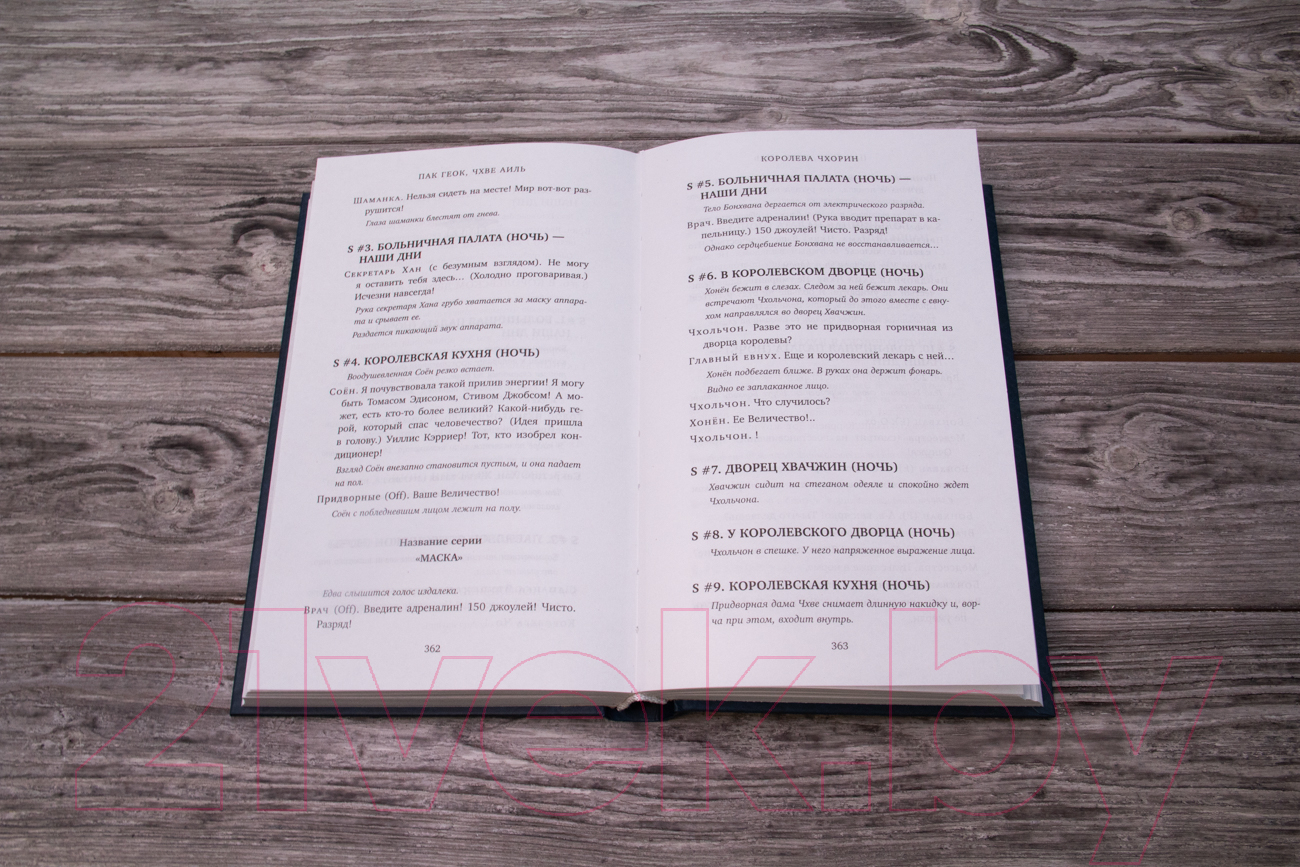 ПАК ГЕОК, ЧХВЕ АИЛЬ
Шаманка. Нельзя сидеть на месте! Мир вот-вот раз-
рушится!
Глаза шаманки блестят от гнева.
S #3. БОЛЬНИЧНАЯ ПАЛАТА (НОЧЬ) —
НАШИ ДНИ
Секретарь Хан (с безумным взглядом). Не могу
я оставить тебя здесь... (Холодно проговаривая.)
Исчезни навсегда!
Рука секретаря Хана грубо хватается за маску аппара-
та и срывает ее.
Раздается пикающий звук аппарата.
S #4. КОРОЛЕВСКАЯ КУХНЯ (НОЧЬ)
Воодушевленная Соён резко встает.
Соён. Я почувствовала такой прилив энергии! Я могу
быть Томасом Эдисоном, Стивом Джобсом! А мо-
жет, есть кто-то более великий? Какой-нибудь ге-
рой, который спас человечество? (Идея пришла
в голову.) Уиллис Кэрриер! Тот, кто изобрел кон-
диционер!
Взгляд Соён внезапно становится пустым, и она падает
на пол.
Придворные (Off). Ваше Величество!
Соён с побледневшим лицом лежит на полу.
Название серии
«МАСКА»
Едва слышится голос издалека.
Врач (Off). Введите адреналин! 150 джоулей! Чисто.
Разряд!
362
КОРОЛЕВА ЧХОРИН
S #5. БОЛЬНИЧНАЯ ПАЛАТА (НОЧЬ) —
НАШИ ДНИ
Тело Бонхвана дергается от электрического разряда.
Врач. Введите адреналин! (Рука вводит препарат в ка-
пельницу.) 150 джоулей! Чисто. Разряд!
Однако сердцебиение Бонхвана не восстанавливается...
S #6. В КОРОЛЕВСКОМ ДВОРЦЕ (НОЧЬ)
Хонён бежит в слезах. Следом за ней бежит лекарь. Они
встречают Чхольчона, который до этого вместе с евну-
хом направлялся во дворец Хвачжин.
Чхольчон. Разве это не придворная горничная из
дворца королевы?
Главный евнух. Еще и королевский лекарь с ней...
Хонён подбегает ближе. В руках она держит фонарь.
Видно ее заплаканное лицо.
Чхольчон. Что случилось?
Хонён. Ее Величество!..
Чхольчон. !
S #7. ДВОРЕЦ ХВАЧЖИН (НОЧЬ)
Хвачжин сидит на стеганом одеяле и спокойно ждет
Чхольчона.
S #8. У КОРОЛЕВСКОГО ДВОРЦА (НОЧЬ)
Чхольчон в спешке. У него напряженное выражение лица.
S #9. КОРОЛЕВСКАЯ КУХНЯ (НОЧЬ)
Придворная дама Чхве снимает длинную накидку и, вор-
ча при этом, входит внутрь.
363
21vek.by